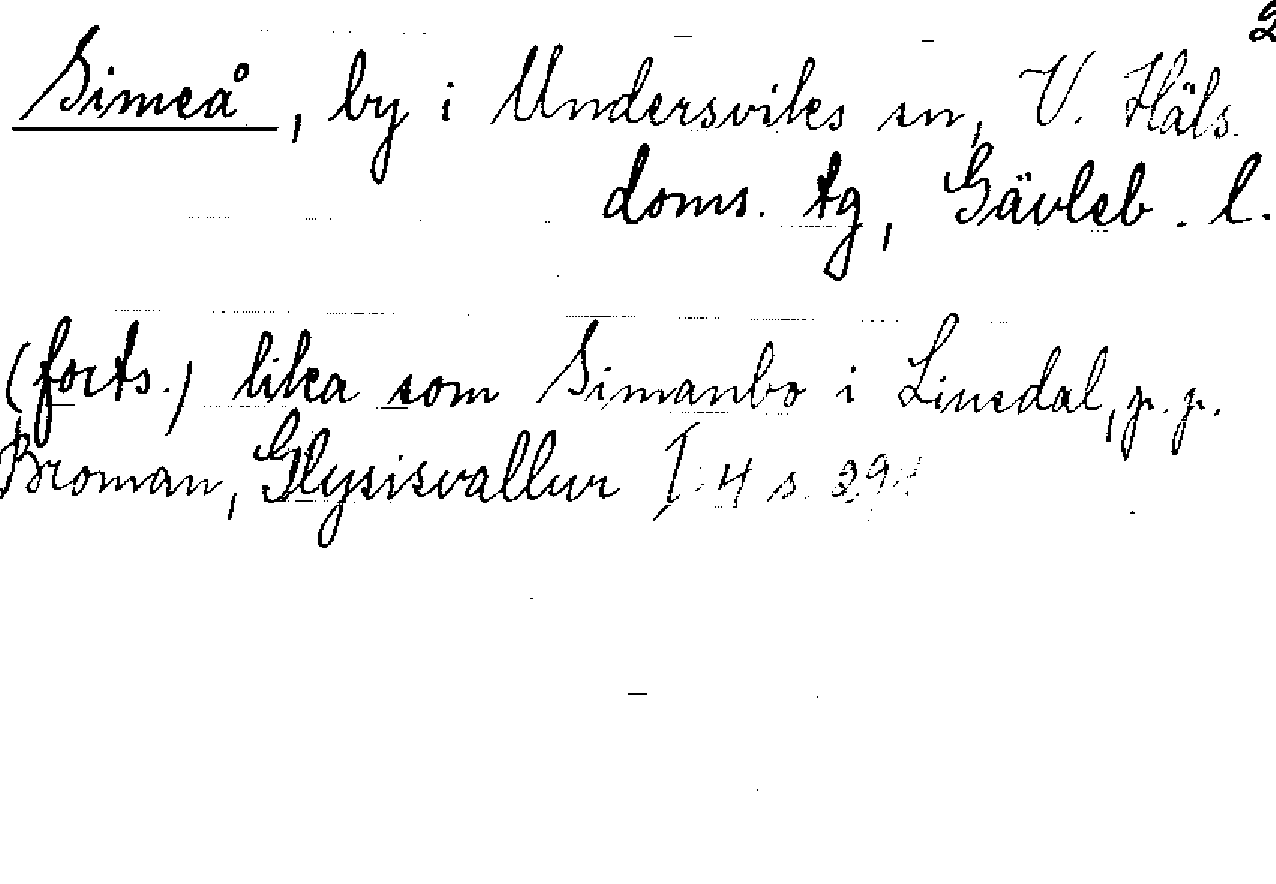 2
Simeå, by i Undersviks sn, V. Häls.
doms. tg, Gävleb. l.
(forts.) lika som Simanbo i Liusdal, p. p.
Broman, Glysisvallur I: 4 s.